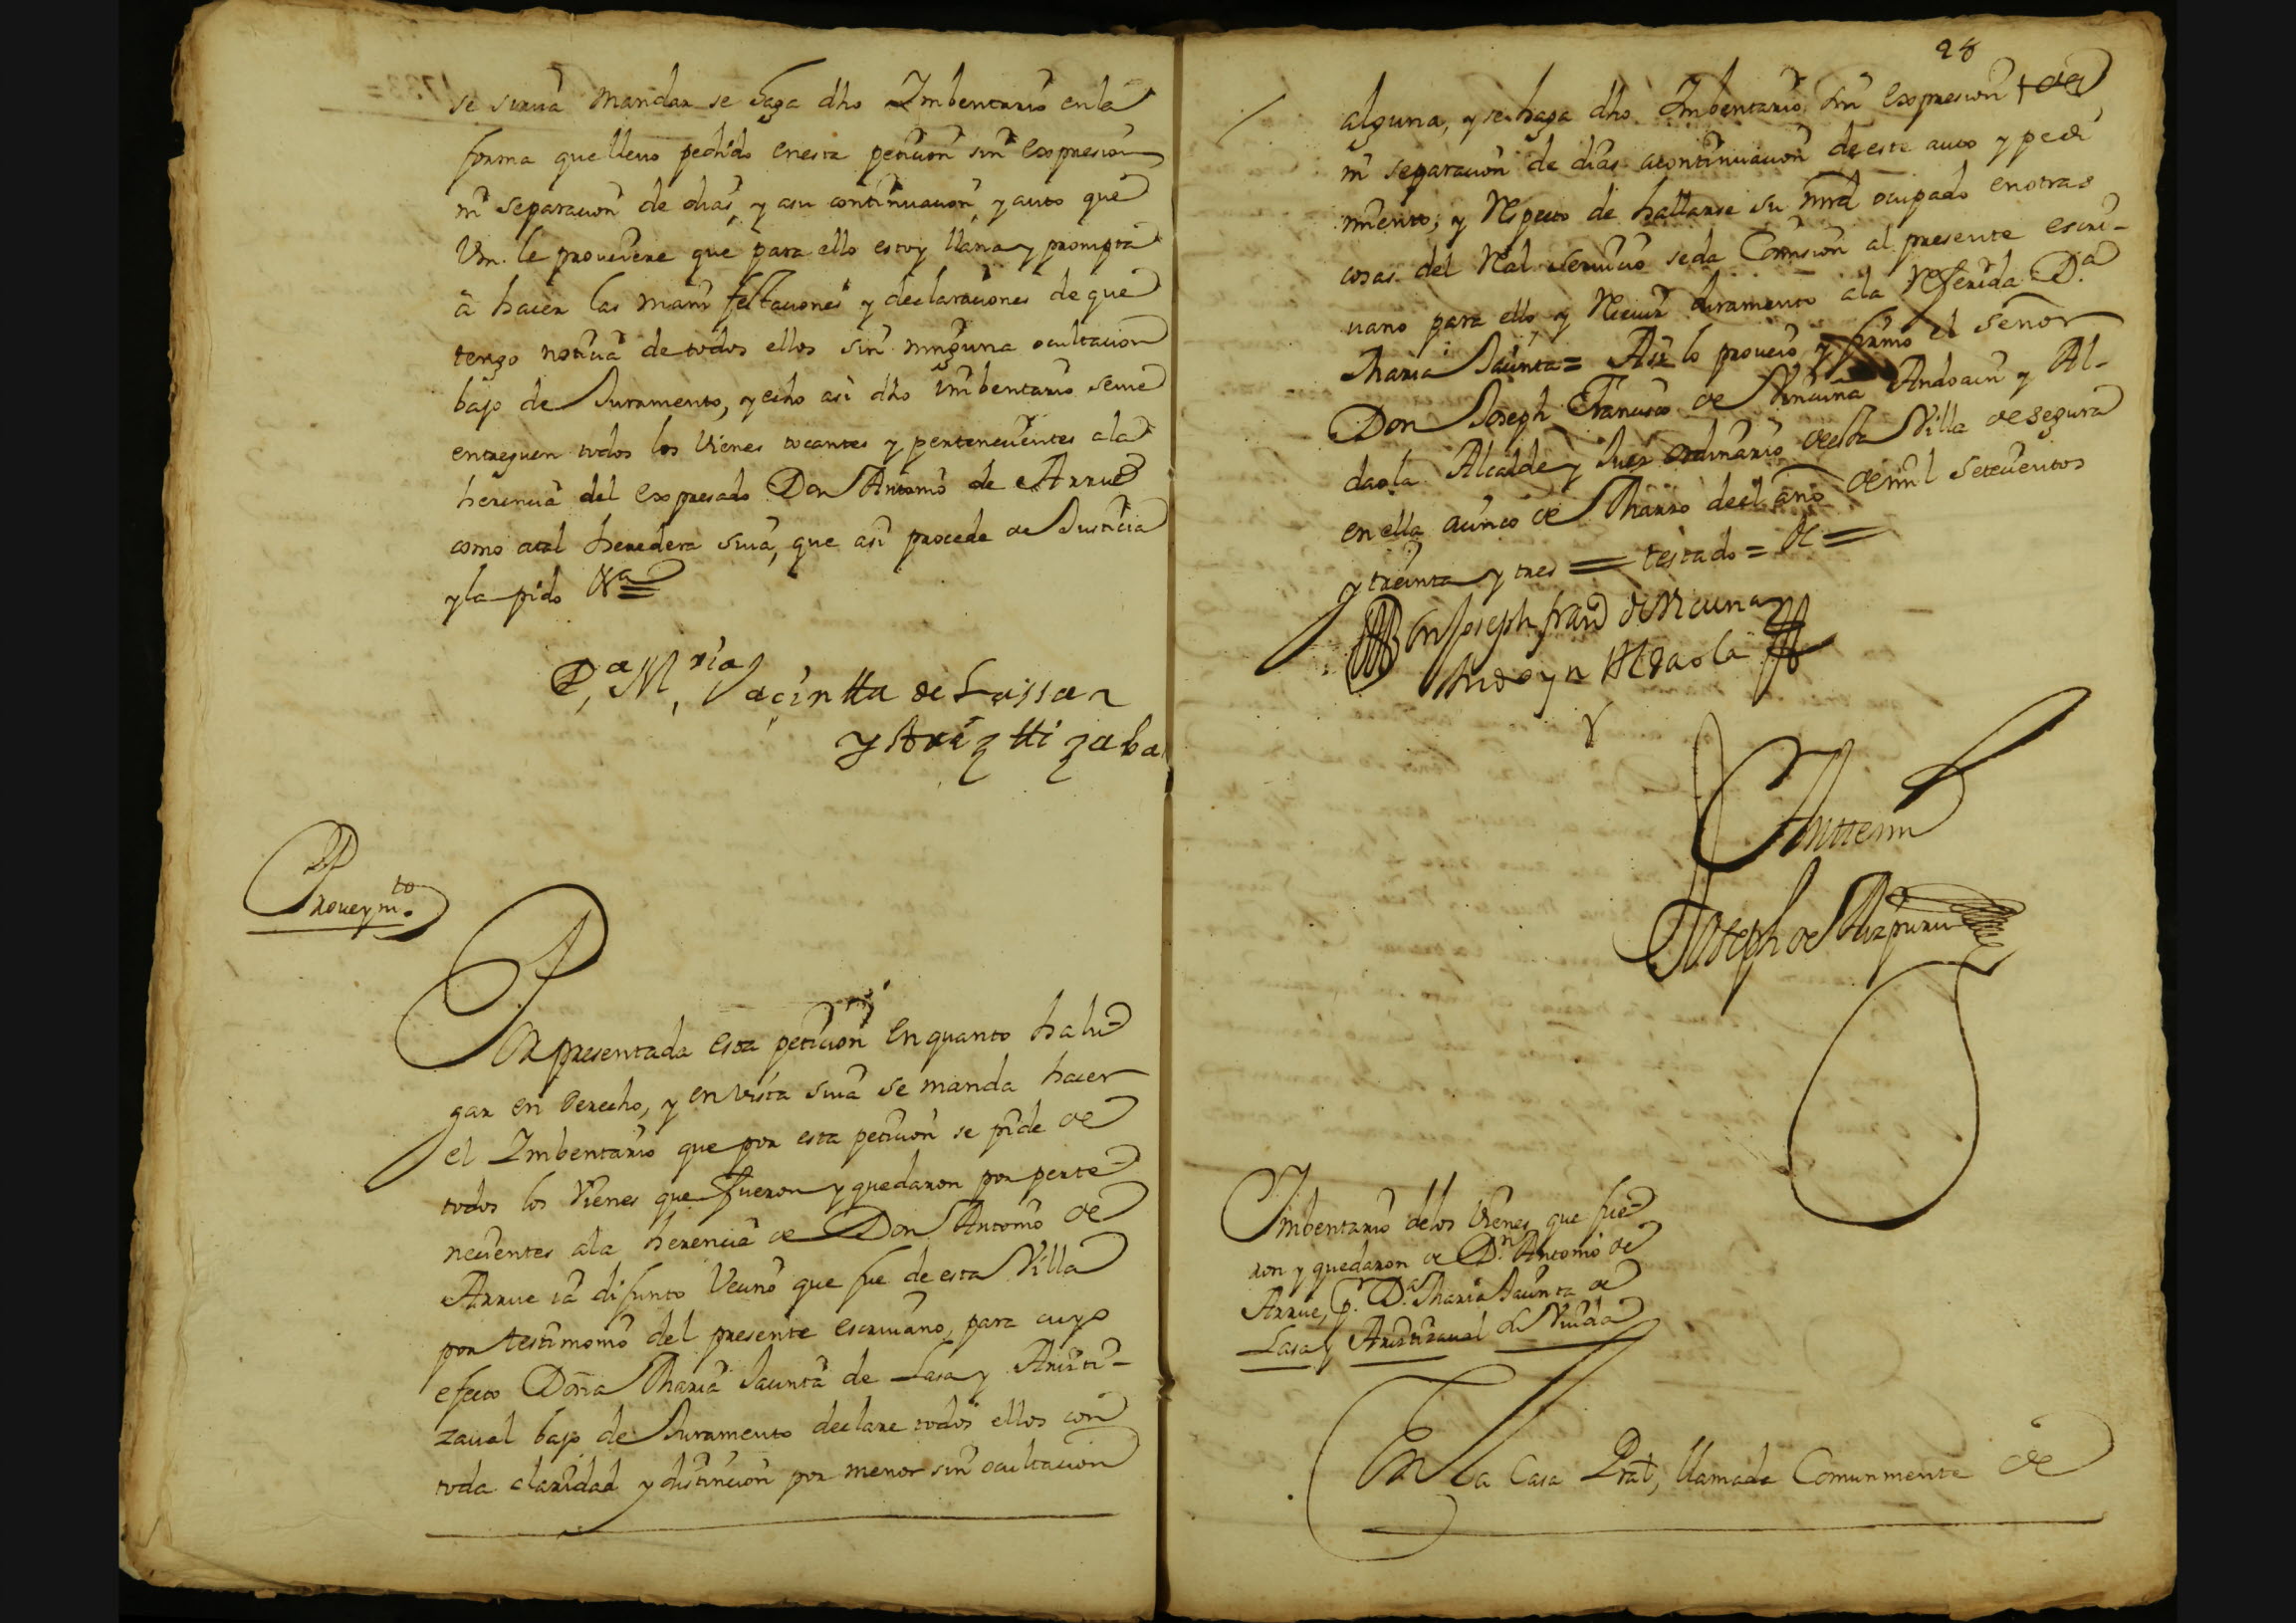 se sirua mandar se haga dho Imbentario en la
forma que lleuo pedido en esta peticion sin expresion
ni separacion de dias, y a su continuacion, y auto que
Vm. le proueiere que para ello estoy llana y prompta
â hacer las manifestaciones y declaraciones de que
tengo noticia de todos ellos sin ninguna ocultacion
bajo de Juramento, y echo asi dho imbentario se me
entreguen todos los vienes tocantes y pertenecientes a la
herencia del expresado Don Antonio de Arrue
como a tal heredera suia, que asi procede de Justicia
y la pido &a
Da, M,ria Jacintta de Lassa
y Ariztizabal
Proueym.to
Por presentada esta peticion en quanto ha lu-
gar en derecho, y en vista suia se manda hacer
el Imbentario que por esta peticion se pide de
todos los vienes que fueron y quedaron por perte-
necientes a la herencia de Don Antonio de
Arrue ia difunto vecino que fue de esta Villa
por testimonio del presente escriuano, para cuyo
efecto Doña Maria Jacinta de Lasa y Arizti-
zaual bajo de Juramento declare todos ellos con
toda claridad y distincion por menor sin ocultacion
28
alguna, y se haga dho Imbentario sin expresion
ni separacion de dias a continuacion de este auto y pedi
miento; y respecto de hallarse su mrd ocupado en otras
cosas del Real seruicio se da Comision al presente escri-
uano para ello, y reciuir Juramento a la referida D.a
Maria Jacinta = Asi lo proueio, y firmo el señor
Don Joseph Francisco de Vicuña Andoain y Al-
daola Alcalde y Juez ordinario de esta Villa de Segura
en ella a cinco de Marzo de el año de mil setecientos
y treinta y tres = testado = de =
Dn Joseph franco de Vicuna
Andoyn Aldaola
Antte mi
Joseph de Aizpuru
Imbentario de los vienes que fue-
ron y quedaron de D.n Antonio de
Arrue, p.r D.a Maria Jacinta de
Lasa y Ariztizaual su Viuda
En la Casa Pral, llamada Comunmente de